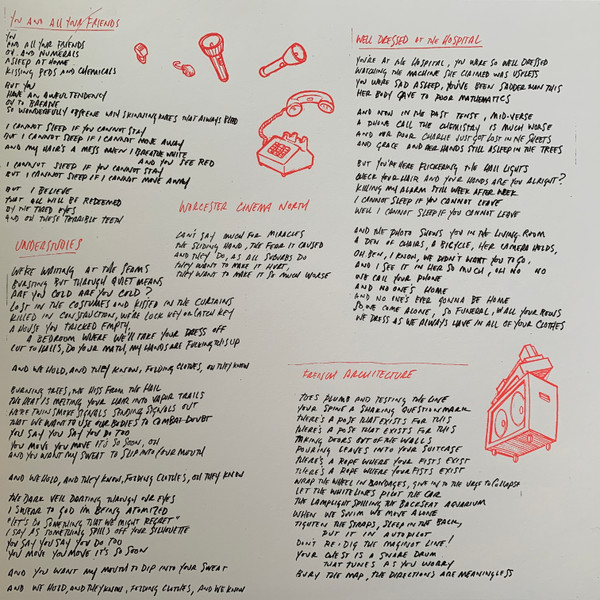 YOU AND ALL YOUR FRIENDS
YOU
AND ALL YOUR FRIENDS
OH. AND NUMERALS
ASLEEP AT HOME
KISSING PEDS AND CHEMICALS
BUT YOU
HAVE AN AWFUL TENDENCY
OH TO BREATHE
SO WONDERFULLY OBSCENE WIN SKINNING KNEES THAT ALWAYS BLEED
I CANNOT SLEEP IF YOU CANNOT STAY
BUT I CANNOT SLEEP IF I CANNOT MOVE AWAY
AND MY HAIR'S A MESS WHEN I BREATHE WHITE
AND YOU SEE RED
I CANNOT SLEEP IF YOU CANNOT STAY
BUT I CANNOT SLEEP IF I CANNOT MOVE AWAY
BUT I BELIEVE
THAT ALL WILL BE REDEEMED
OH THE TIRED EYES
AND OH THESE TERRIBLE TEETH
WORCESTER CINEMA NORTH
CAN'T SAY MUCH FOR MIRACLES
THE SLIDING HAND, THE FEAR IT CAUSED
AND THEY DO, AS ALL SUBURBS DO
THEY WANT TO MAKE IT HURT,
THEY WANT TO MAKE IT SO MUCH WORSE
UNDERSTUDIES
WE'RE WAITING AT THE SEAMS
BURSTING BUT THROUGH QUIET MEANS
ARE YOU COLD ARE YOU COLD?
LOST IN THE COSTUMES AND KISSED IN THE CURTAINS
KILLED IN CONSTRUCTION, WE'RE LOCK KEY OR LATCH KEY
A HOUSE YOU TRICKED EMPTY,
A BEDROOM WHERE WE'LL TEAR YOUR DRESS OFF
CUT TO HALLS, DO YOUR MATH, MY HANDS ARE FUCKING THIS UP
AND WE HOLD, AND THEY KNOW, FOLDING CLOTHES, OH THEY KNOW
BURNING TREES, WE HISS FROM THE HAIL
THE HEAT IS MELTING YOUR HAIR INTO VAPOR TRAILS
WE'RE TWINS, SMOKE SIGNALS SENDING SIGNALS OUT
THAT WE WANT TO USE OUR BODIES TO COMBAT DOUBT
YOU SAY YOU SAY YOU DO TOO
YOU MOVE YOU MOVE IT'S SO SOON, OH
AND YOU WANT MY SWEAT TO SLIP INTO YOUR MOUTH
AND WE HOLD, AND THEY KNOW, FOLDING CLOTHES, OH THEY KNOW
THE DARK VEIL DARTING THROUGH OUR EYES
I SWEAR TO GOD I'M BEING ATOMIZED
"LET'S DO SOMETHING THAT WE MIGHT REGRET"
I SAY AS SOMETHING SPILLS OFF YOUR SILHOUETTE
YOU SAY YOU SAY YOU DO TOO
YOU MOVE YOU MOVE IT'S SO SOON
AND YOU WANT MY MOUTH TO DIP INTO YOUR SWEAT
AND WE HOLD, AND THEY KNOW, FOLDING CLOTHES, AND WE KNOW
WELL DRESSED AT THE HOSPITAL
YOU'RE AT THE HOSPITAL, YOU WERE SO WELL DRESSED
WATCHING THE MACHINE SHE CLAIMED WAS USELESS
YOU WERE SAD ASLEEP, YOU'VE BEEN SADDER THAN THIS
HER BODY GAVE TO POOR MATHEMATICS
AND NOW IN THE PAST TENSE, MID-VERSE
A PHONE CALL THE CHEMISTRY IS MUCH WORSE
AND OUR POOR CHARLIE JUST GOT LOST IN THE SHEETS
AND GRACE AND HER HANDS STILL ASLEEP IN THE TREES
BUT YOU'RE HERE FLICKERING THE HALL LIGHTS
CHECK YOUR HAIR AND YOUR HANDS ARE YOU ALRIGHT?
KILLING MY ALARM STILL WEEK AFTER WEEK
I CANNOT SLEEP IF YOU CANNOT LEAVE
WELL I CANNOT SLEEP IF YOU CANNOT LEAVE
AND THE PHOTO SHOWS YOU IN THE LIVING ROOM
A DEN OF CHAIRS, A BICYCLE, HER CAMERA HOLDS,
OH BEN, I KNOW, WE DIDN'T WANT YOU TO GO,
AND I SEE IT IN HER SO MUCH, OH NO NO
WE CALL YOUR PHONE
AND NO ONE'S HOME
AND NO ONE'S EVER GONNA BE HOME
SO WE COME ALONE, SO FUNERAL, WALL YOUR ROWS
WE DRESS AS WE ALWAYS HAVE IN ALL OF YOUR CLOTHES
FRENCH ARCHITECTURE
TOES PLUMB AND TESTING THE LINE
YOUR SPINE A SHARING QUESTION MARK
THERE'S A POSE THAT EXISTS FOR THIS
THERE'S A POSE THAT EXISTS FOR THIS
TAKING DOORS OUT OF THE WALLS
POURING LEAVES INTO YOUR SUITCASE
THERE'S A ROPE WHERE YOUR FISTS EXIST
THERE'S A ROPE WHERE YOUR FISTS EXIST
WRAP THE WHEEL IN BANDAGES, GIVE IN TO THE URGE TO COLLAPSE
LET THE WHITE LINES PILOT THE CAR
THE LAMPLIGHT SPILLING THE BACKSEAT AQUARIUM
WHEN WE SWIM WE MOVE ALONE
TIGHTEN THE STRAPS, SLEEP IN THE BACK,
PUT IT IN AUTOPILOT
DON'T RE-DIG THE MAGINOT LINE!
YOUR CHEST IS A SNARE DRUM
THAT TUNES AS YOU WORRY
BURY THE MAP, THE DIRECTIONS ARE MEANINGLESS